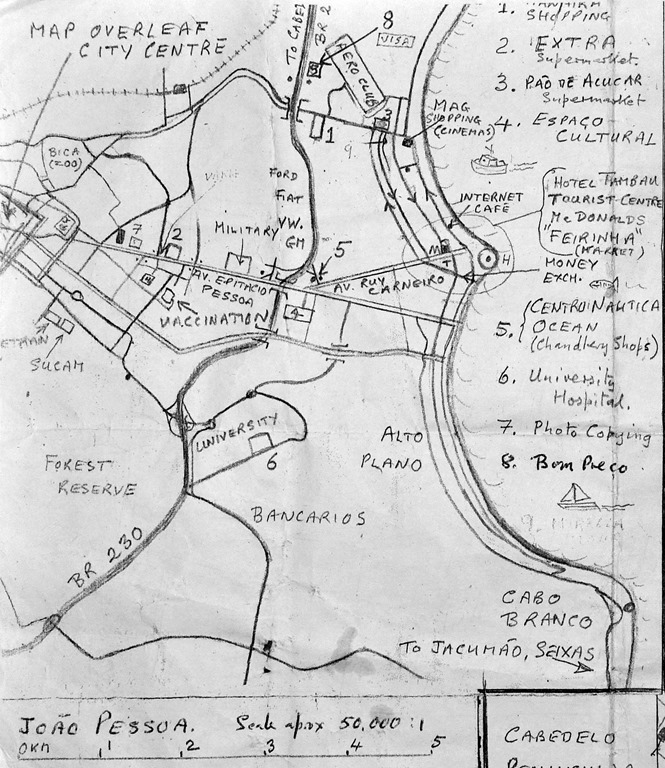 MAP OVERLEAF
CITY CENTRE
TO CABE
BR 2
8
VISA
AERO CLUB
1.
SHOPPING
2. EXTRA
Supermarket.
3. PÃO DE AÇUCAR
Supermarket
4. ESPAÇO
CULTURAL
MAG
SHOPPING
(CINEMAS)
3
1
9.
BICA
(ZOO)
FORD
FIAT
VW.
GM
INTERNET
CAFÉ
HOTEL TAMBAU
TOURIST CENTRE
McDONALDS
"FEIRINHA"
(MARKET)
MONEY
EXCH.
7
2
MILITARY
5
M
T
H
AV. EPITACIO
PESSOA
AV. RUY
CARNEIRO
VACCINATION
4
5. CENTRO NAUTICA
OCEAN
(Chandlery Shops)
ETRAN
SUCAM
6. University
Hospital.
UNIVERSITY
6
ALTO
PLANO
7. Photo Copying
8. Bom Preço
FOREST
RESERVE
BANCARIOS
9.
BR 230
CABO
BRANCO
TO JACUMÃO, SEIXAS
JOÃO PESSOA. Scale aprox 50,000:1
0KM 1 2 3 4 5
CABEDELO